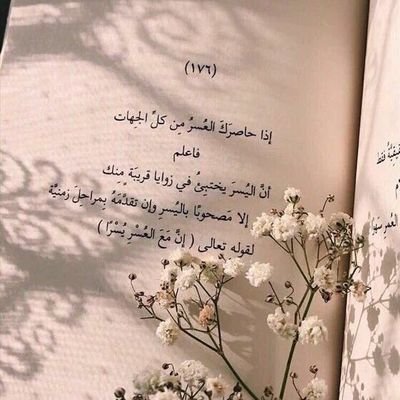 (١٧٦)
إذا حاصرَكَ العُسرُ مِن كلِّ الجِهات
فاعلم
أنَّ اليُسرَ يختبئُ في زوايا قريبَة مِنك
إلا مَصحوبًا باليُسرِ وإن تقدَّمَهُ بِمراحِلَ زمنيَّة
لقوله تعالى ( إنَّ مَعَ العُسْرِ يُسْرًا )
فقط
العُمرِ